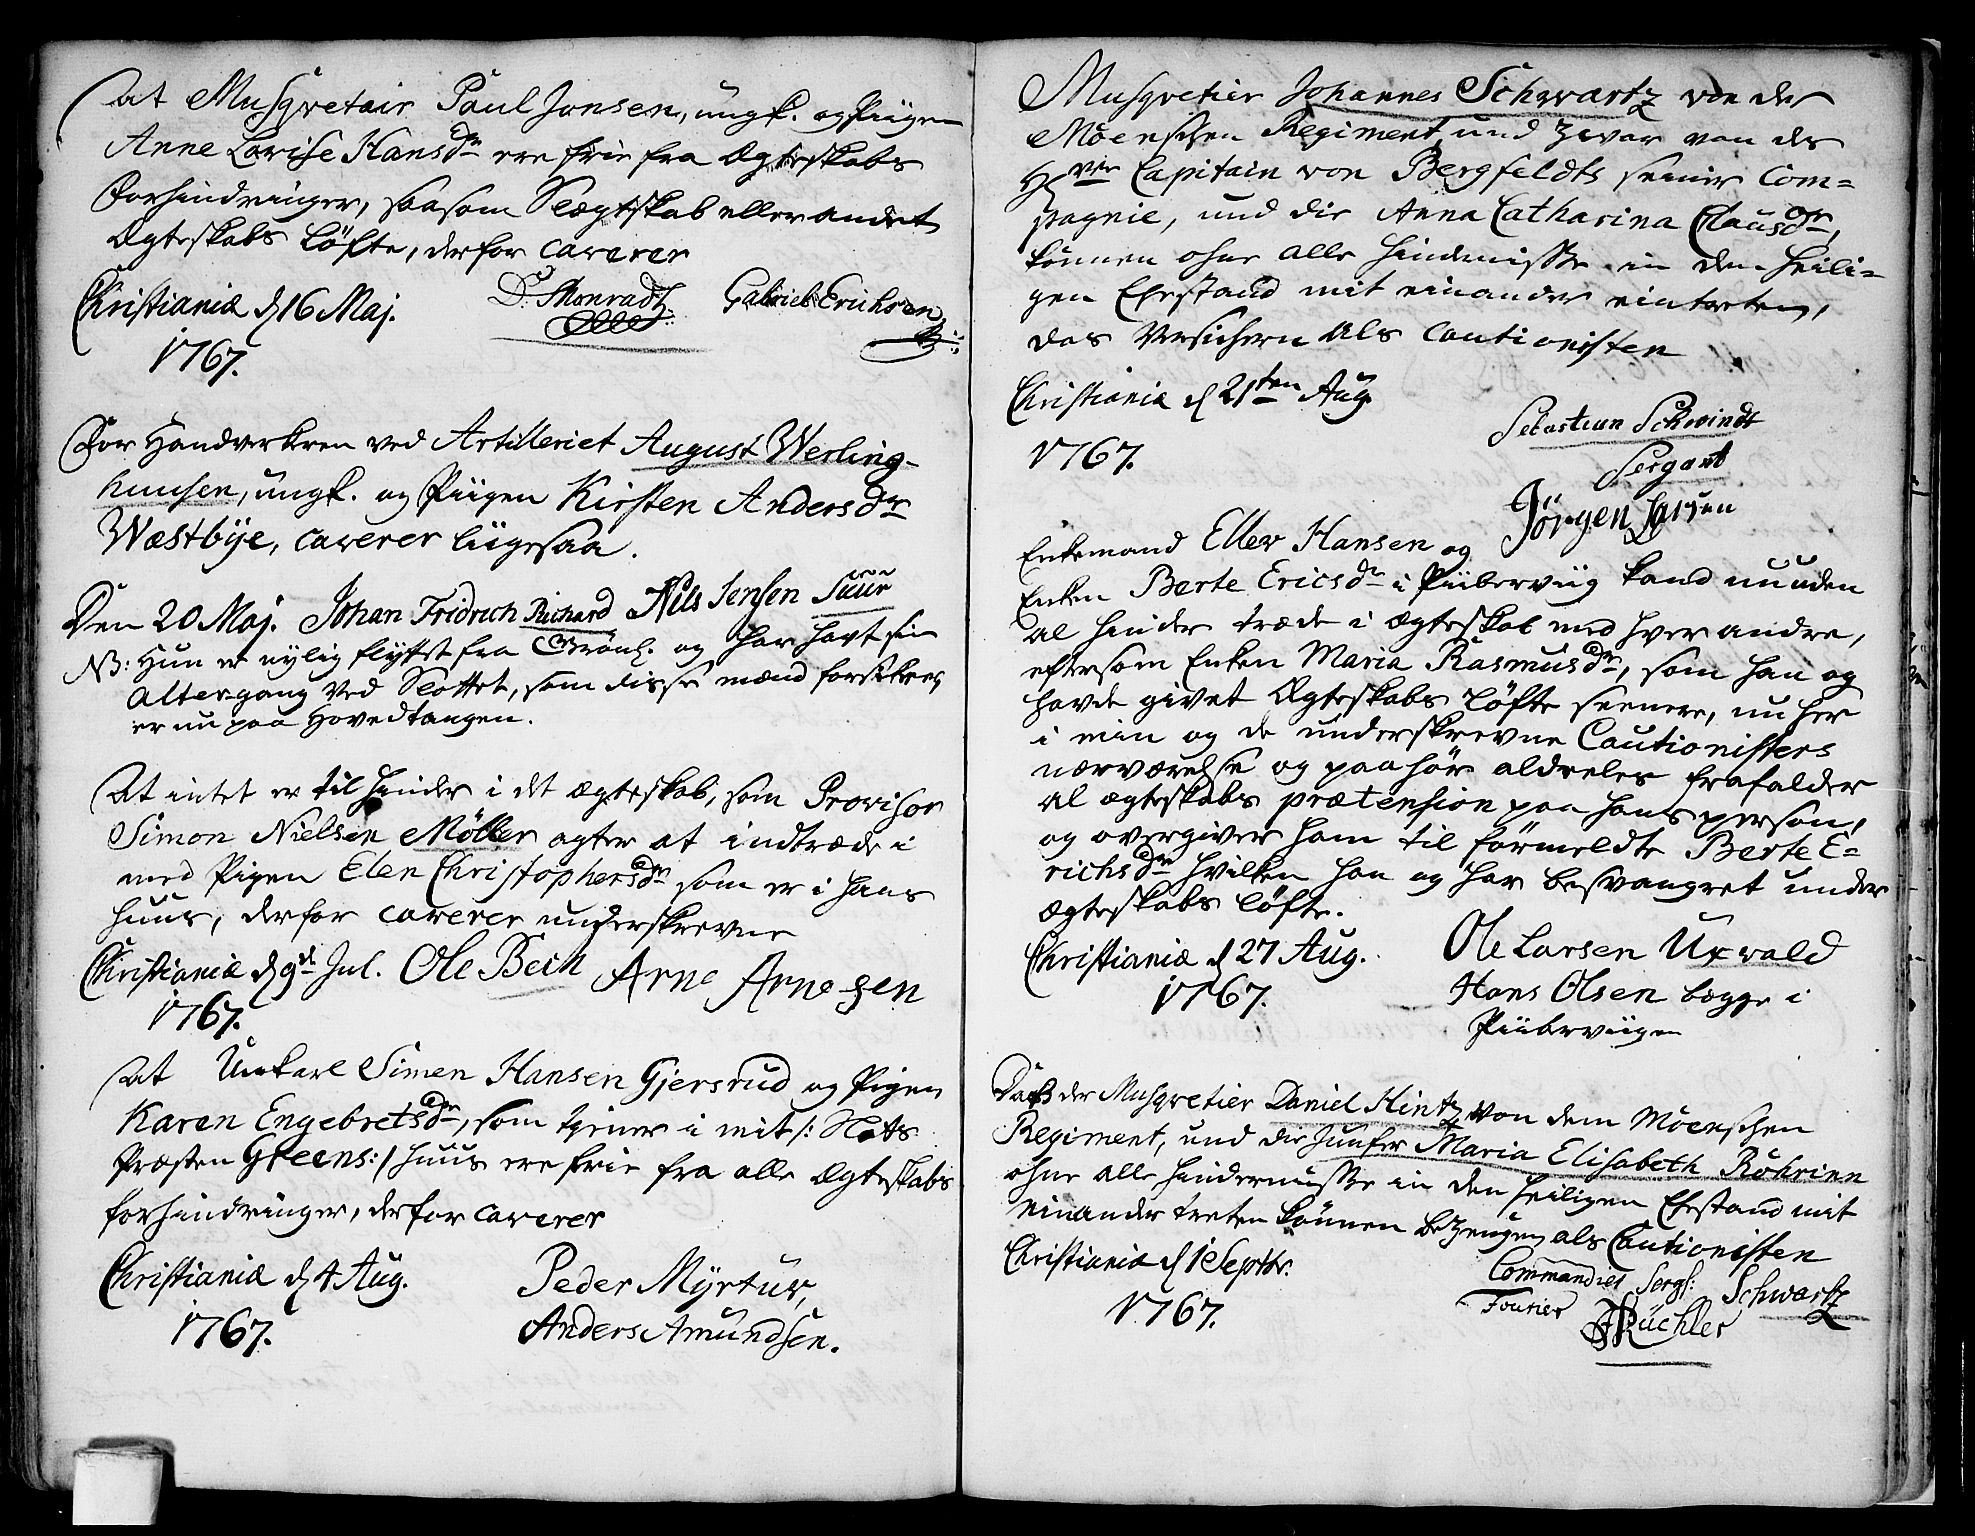 At Musqvetair Paul Jonsen, ungk. og Piigen
Anne Lovise Hansdr ere frie fra Ægteskabs
Forhindringer, saasom Slægtskab eller andet
Ægteskabs Løfte, derfor caverer
Christianiæ d 16 Maj. D. Monradt. Gabriel Erichsen
1767.
For Handverkeren ved Artilleriet August Werling-
huusen, ungk. og Piigen Kirsten Andersdr
Wæstbÿe, caverer liigesaa.
Den 20 Maj. Johan Fridrich Richard Nils Jensen Suur
NB: Hun er nylig flyttet fra Grönl. og har havt sin
Altergang ved Slottet, som disse mænd forsikrer,
er nu paa Hovedtangen.
At intet er til hinder i det ægteskab, som Provisor
Simon Nielsen Möller agter at indtræde i
med Pigen Elen Christophersdr som er i hans
huus, derfor caverer underskrevne
Christianiæ d 9de Jul. Ole Bech Arne Arnesen
1767.
At Unkarl Simen Hansen Gjersrud og Pigen
Karen Engebretsdr, som tjener i mit /: Slots
Præsten Greens :/ huus ere frie fra alle Ægteskabs
forhindringer, derfor caverer
Christianiæ d 4 Aug. Peder Mÿrtur,
1767. Anders Amundsen.
Musqvetier Johannes Schwartz von der
Möenschen Regiment, und zwar von des
H. Capitain von Bergfeldts seiner Com=
pagnie, und die Anna Catharina Clausdr,
können ohne alle Hindernisse in den heili=
gen Ehestand mit einander eintreten,
das versichern als Cautionisten
Christianiæ d 21ten Aug.
1767. Sebastian Schwindt
Sergant
Jörgen Larsen
Enkemand Ellev Hansen og
Enken Berte Ericsdr i Piiberviig kand nu uden
al hinder træde i ægteskab med hver andre,
eftersom Enken Maria Rasmusdr, som han og
havde givet Ægteskabs Løfte seenere, nu her
i min og de underskrevne Cautionisters
nærværelse og paahør aldeeles frafalder
al ægteskabs prætension paa hans person,
og overgiver ham til förmeldte Berte E=
richsdr hvilken han og har besvangret under
ægteskabs løfte.
Christianiæ d 27 Aug. Ole Larsen Uxvald
1767. Hans Olsen begge i
Piiberviigen
Daß der Musqvetier Daniel Hintz von dem Möenschen
Regiment, und die Junfer Maria Elisabeth Röhrinn
ohne alle hindernisse in den heiligen Ehestand mit
einander treten können bezeugen als Cautionisten
Christianiæ d 1 Septbr. Commandier Serg: Schwartz
1767. Fourier Küchler